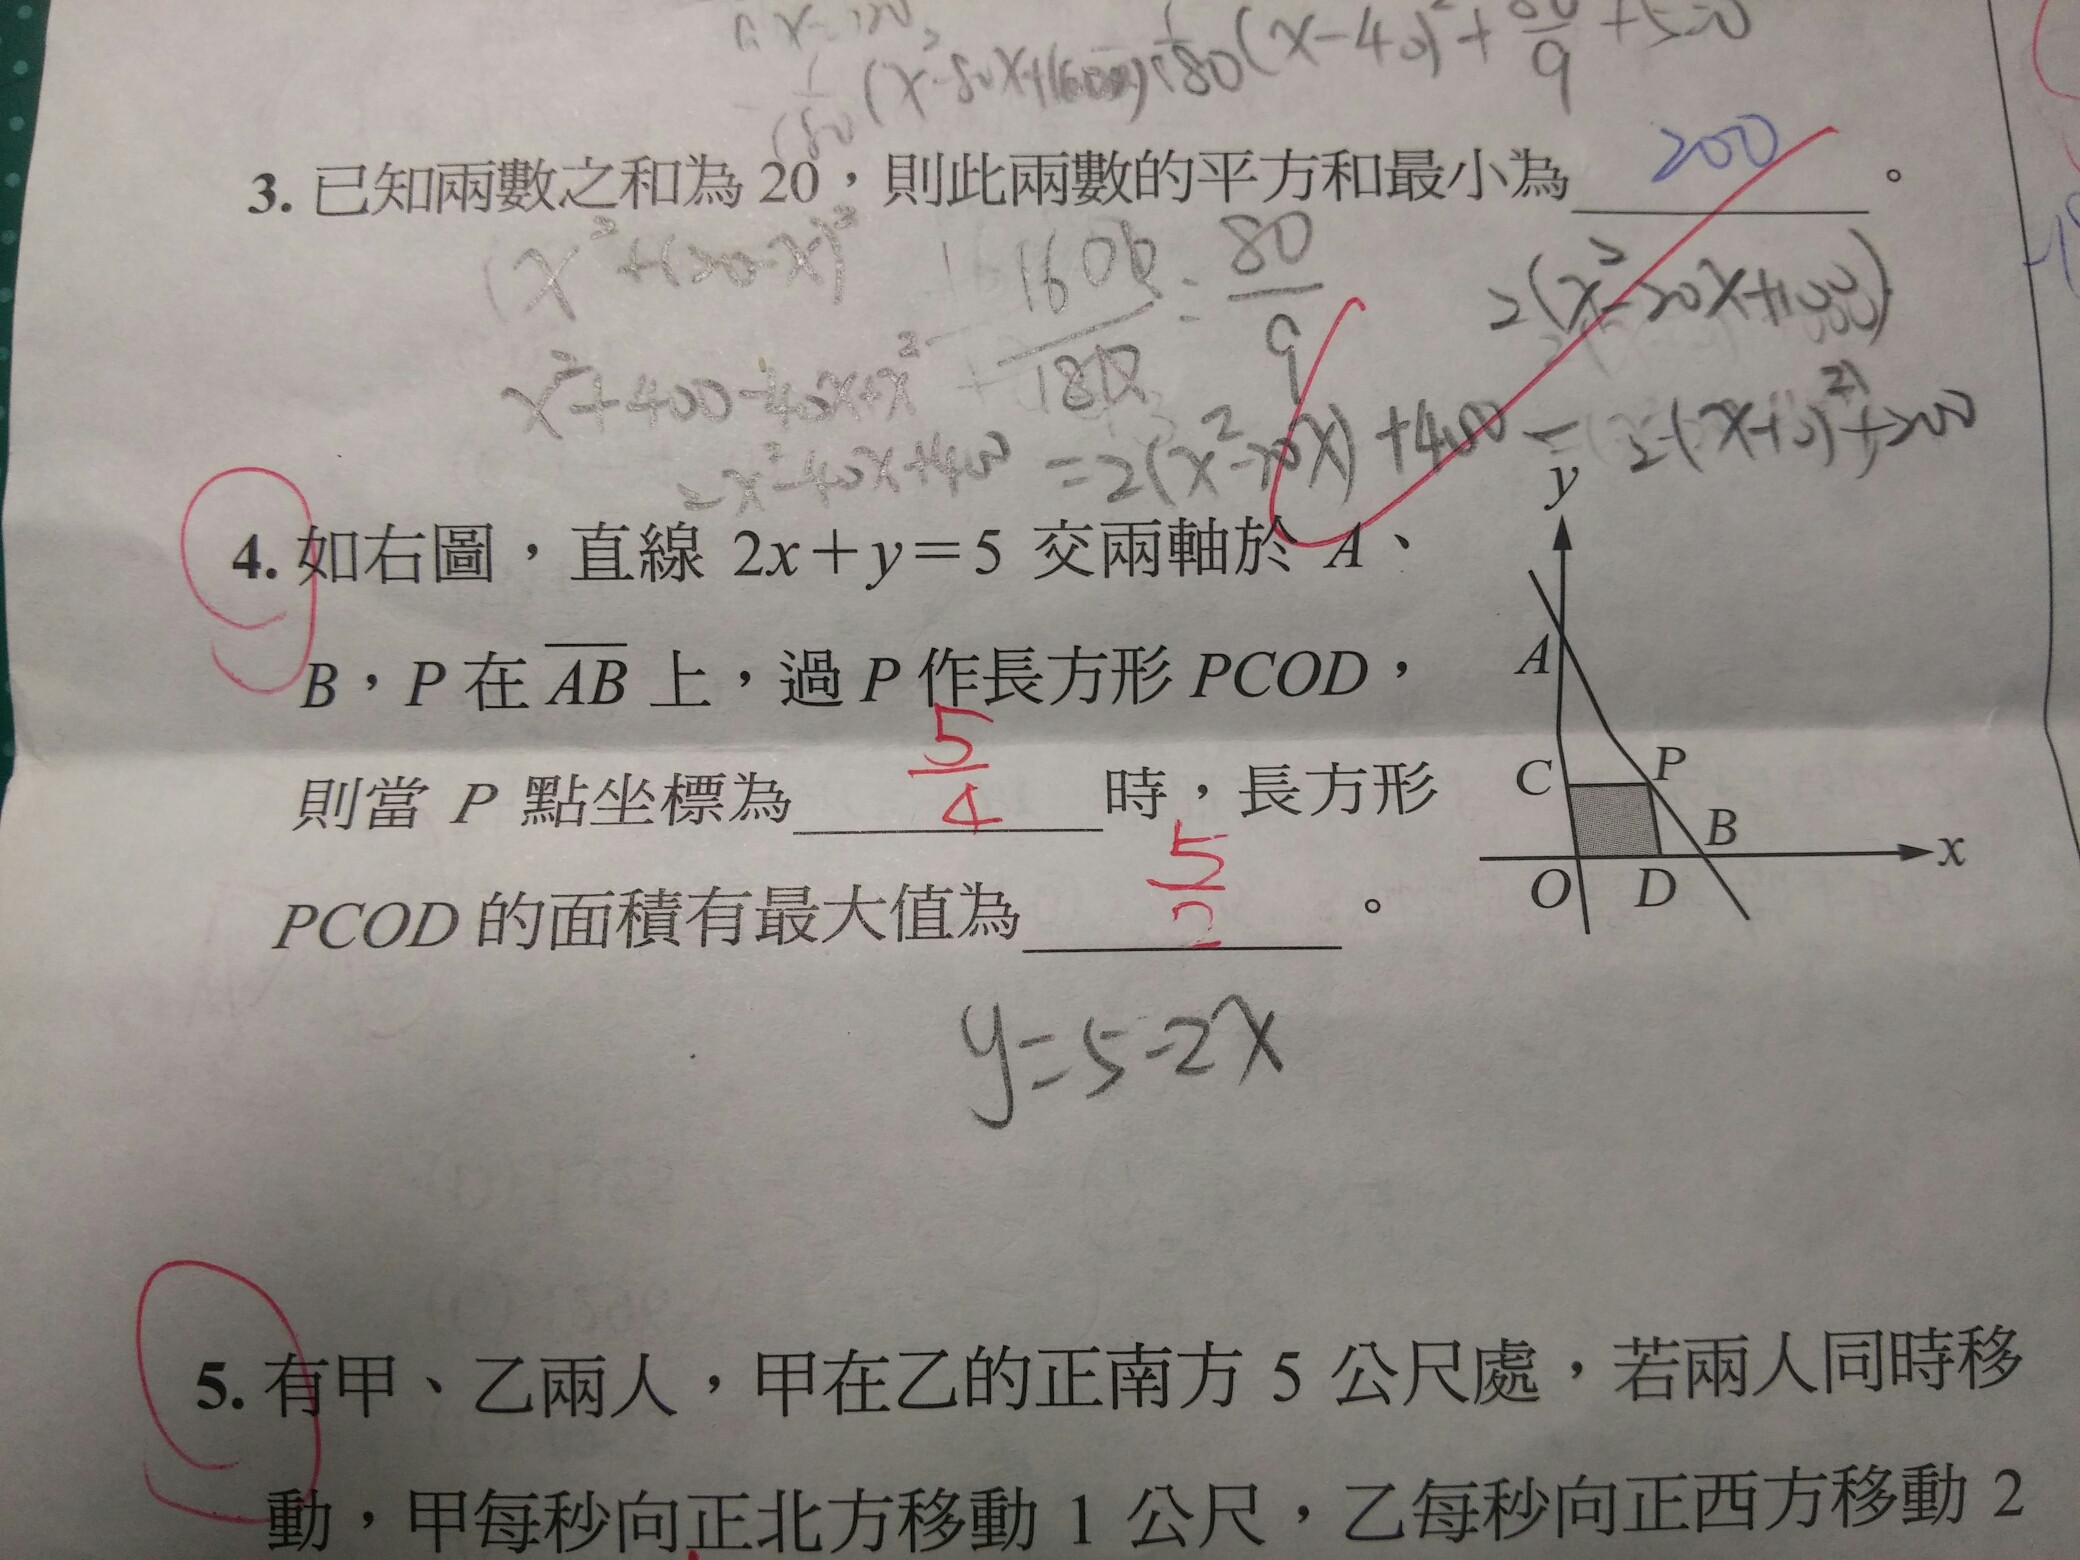 (x-40)² + 80/9 + 5 = 0
(x²-80x+1600)
3. 已知兩數之和為 20，則此兩數的平方和最小為 200 。
(x²+(20-x)²
1600/180 = 80/9
2(x²-20x+100)
x²+400-40x+x²
2x²-40x+400 = 2(x²-20x)+400 =
4. 如右圖，直線 2x+y=5 交兩軸於 A、
B，P 在 AB 上，過 P 作長方形 PCOD，
則當 P 點坐標為 5/4 時，長方形
PCOD 的面積有最大值為 5/2 。
y
A
C
P
B
x
O
D
y=5-2x
5. 有甲、乙兩人，甲在乙的正南方 5 公尺處，若兩人同時移
動，甲每秒向正北方移動 1 公尺，乙每秒向正西方移動 2